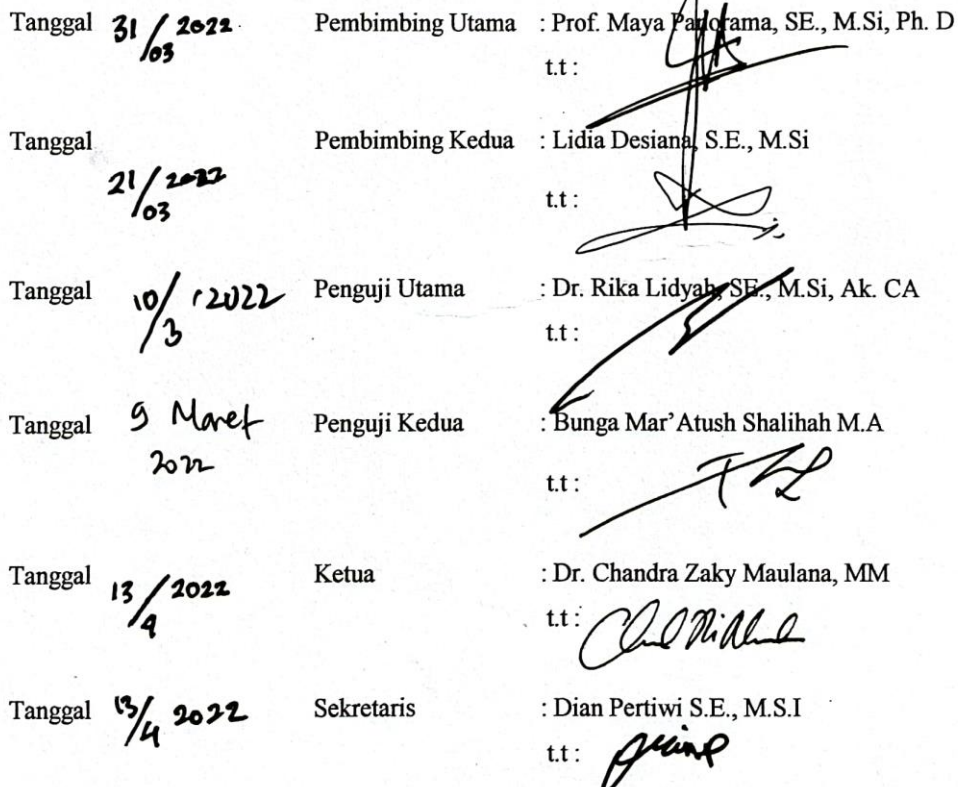 Tanggal 31/03 2022 Pembimbing Utama : Prof. Maya Panorama, SE., M.Si, Ph. D
t.t :
Tanggal Pembimbing Kedua : Lidia Desiana, S.E., M.Si
21/03 2022 t.t :
Tanggal 10/3 2022 Penguji Utama : Dr. Rika Lidyah, SE., M.Si, Ak. CA
t.t :
Tanggal 9 Maret Penguji Kedua : Bunga Mar'Atush Shalihah M.A
2022 t.t :
Tanggal 13/4 2022 Ketua : Dr. Chandra Zaky Maulana, MM
t.t :
Tanggal 13/4 2022 Sekretaris : Dian Pertiwi S.E., M.S.I
t.t :